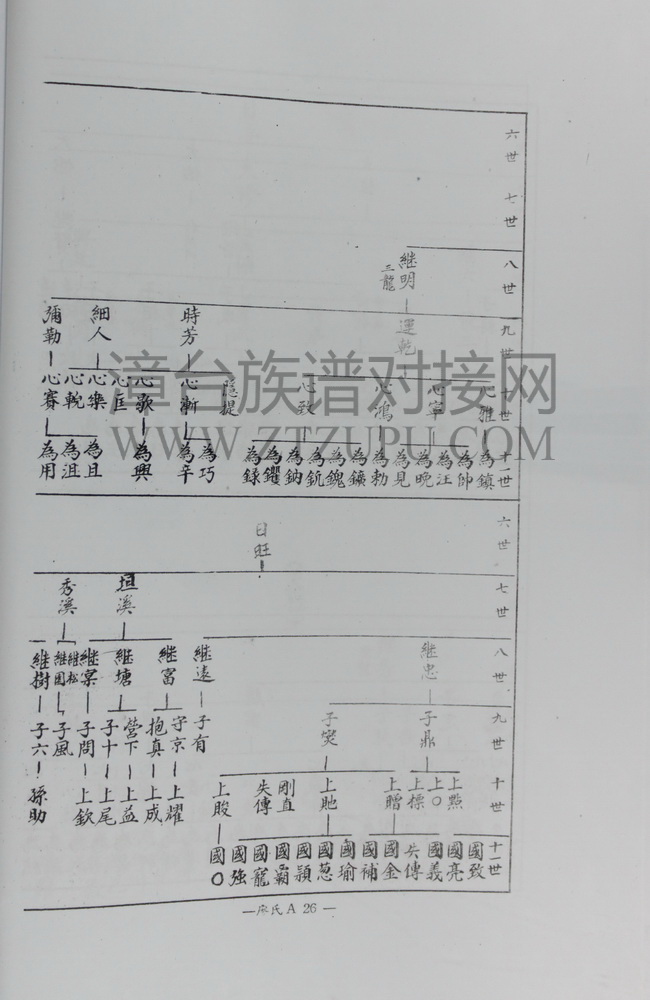 六世
七世
八世
九世
十世
十一世
継明
三龍
運乾
時芳
細人
彌勒
心雅
心寧
心鴻
心致
隱提
心漸
心歌
心匡
心樂
心輗
心賽
為鎮
為帥
為汪
為晚
為見
為勅
為鑛
為鎞
為鈧
為鈉
為鑺
為録
為巧
為辛
為興
為且
為沮
為用
六世
七世
八世
九世
十世
十一世
日旺
垣溪
秀溪
継忠
継遠
継富
継塘
継寀
継松
継園
継樹
子鼎
子燮
子有
守京
抱真
營下
子十
子問
子風
子六
上點
上〇
上標
上贈
上馳
剛直
失傳
上畯
上耀
上成
上益
上尾
上欽
孫助
國致
國亮
國義
失傳
國金
國補
國瑜
國葱
國穎
國霸
國寵
國強
國〇
—宋氏 A 26 —
漳台族谱对接网
WWW.ZTZUPU.COM